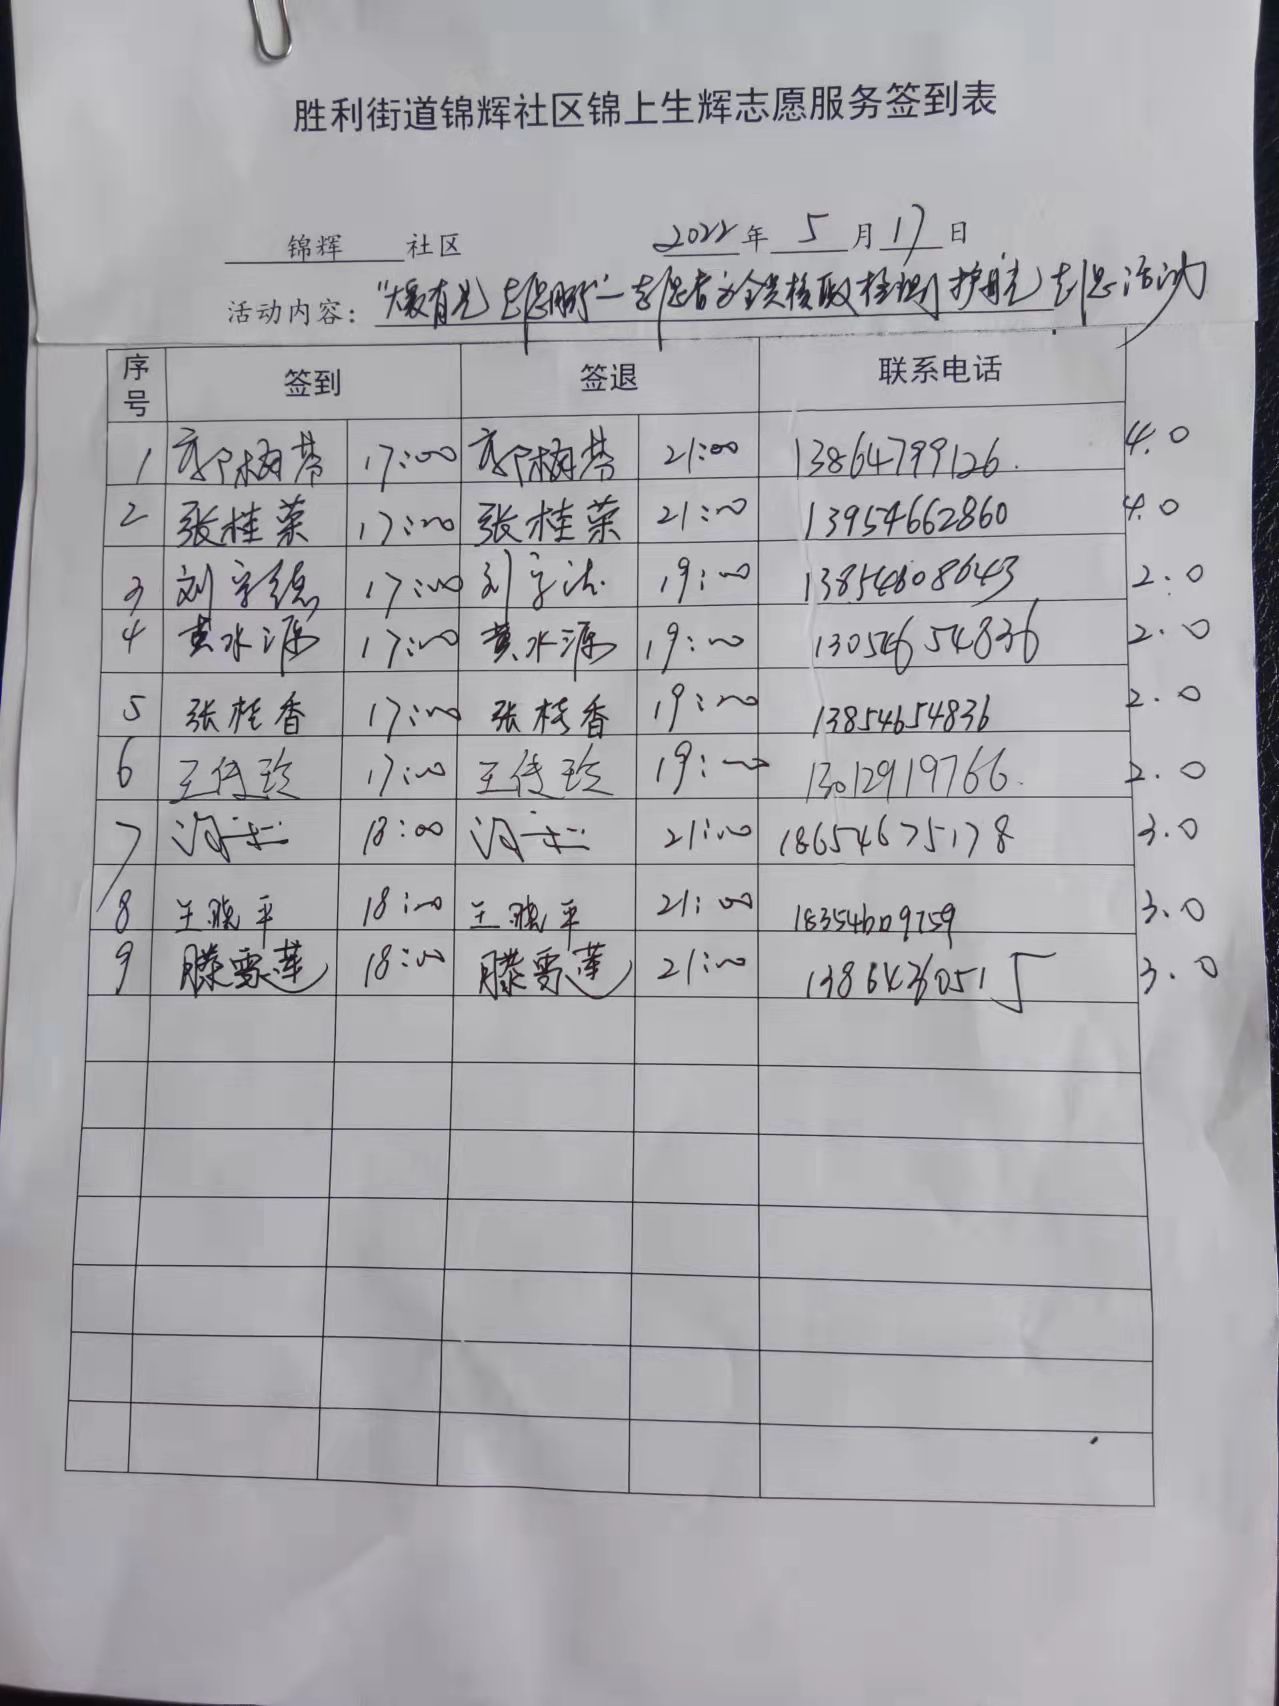 胜利街道锦辉社区锦上生辉志愿服务签到表
锦辉 社区 2022年 5 月 17 日
活动内容: "暖有光 志愿服务"一志愿者为全员核酸检测护航志愿活动
序号 签到 签退 联系电话
1 17:00 21:00 13864799126. 4.0
2 张桂荣 17:00 张桂荣 21:00 13954662860 4.0
3 刘宗德 17:00 19:00 13854608643 2.0
4 黄水源 17:00 黄水源 19:00 13054654836 2.0
5 张桂香 17:00 张桂香 19:00 13854654836 2.0
6 王传玲 17:00 王传玲 19:00 13012919766. 2.0
7 18:00 21:00 18654675178 3.0
8 王晓平 18:00 王晓平 21:00 18354609759 3.0
9 滕雪莲 18:00 滕雪莲 21:00 13864360515 3.0